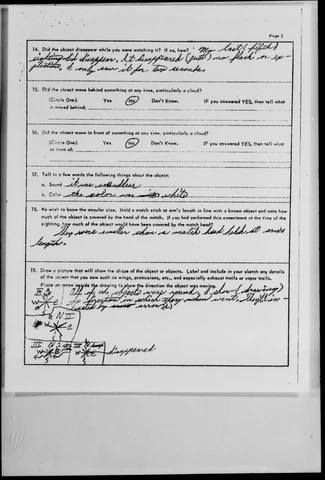 Page 3
14. Did the object disappear while you were watching it? If so, how? My last (fifth)
sighting did disappear, it disappeared (just) no flash or ex-
plosion I only saw it for two seconds.
15. Did the object move behind something at any time, particularly a cloud?
(Circle One): Yes No Don't Know. IF you answered YES, then tell what
it moved behind:
16. Did the object move in front of something at any time, particularly a cloud?
(Circle One): Yes No Don't Know. IF you answered YES, then tell what
in front of:
17. Tell in a few words the following things about the object:
a. Sound it was soundless
b. Color the color was white
18. We wish to know the angular size. Hold a match stick at arm's length in line with a known object and note how
much of the object is covered by the head of the match. If you had performed this experiment at the time of the
sighting, how much of the object would have been covered by the match head?
They were smaller than a match head held at arms
length.
19. Draw a picture that will show the shape of the object or objects. Label and include in your sketch any details
of the object that you saw such as wings, protrusions, etc., and especially exhaust trails or vapor trails.
Place an arrow beside the drawing to show the direction the object was moving.
all of the objects were round, I show (drawing)
the direction in which they went,
disappeared